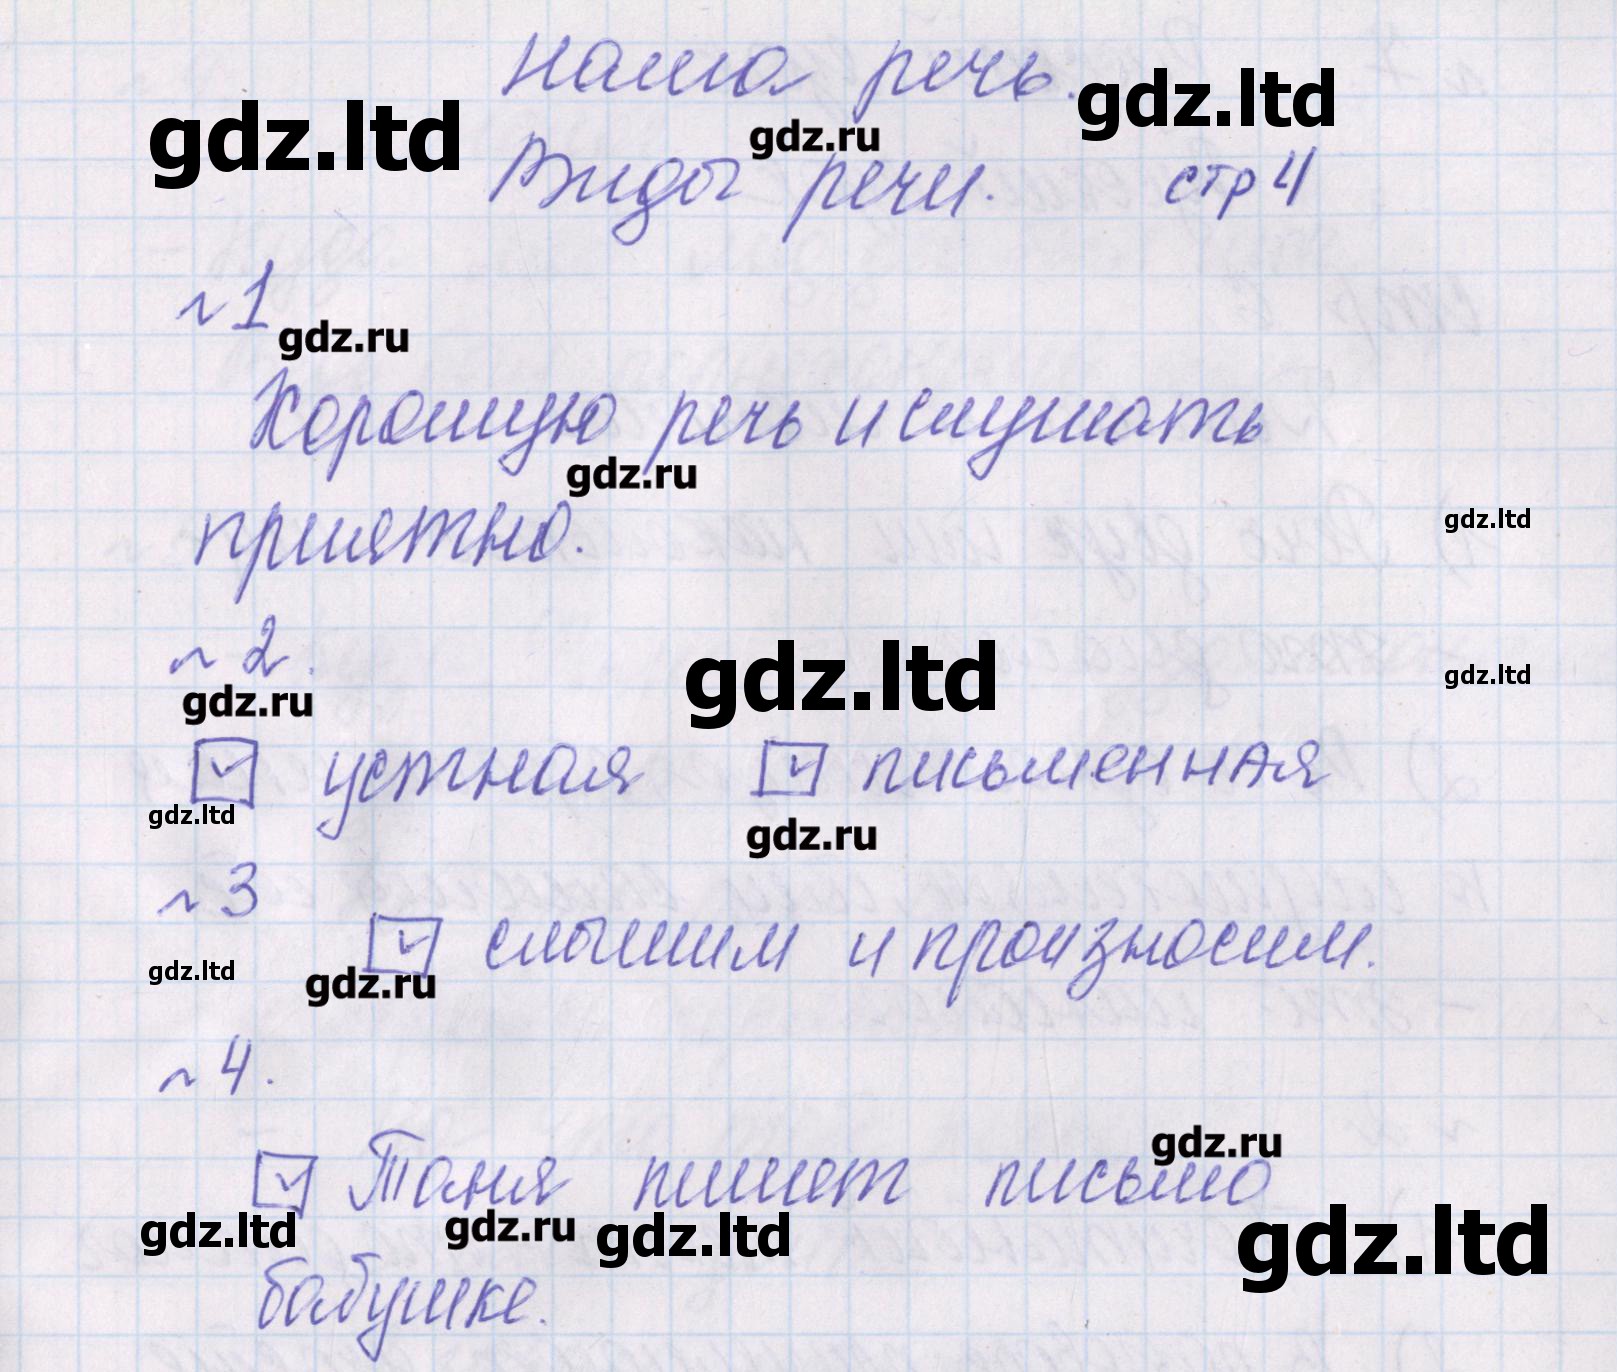 Наша речь.
gdz.ltd
gdz.ltd
gdz.ru
Виды речи. стр 4
№1
gdz.ru
Хорошую речь и слушать
gdz.ru
приятно.
gdz.ltd
№2.
gdz.ltd
gdz.ltd
gdz.ru
устная письменная
gdz.ltd
gdz.ru
№3
слышим и произносим.
gdz.ltd
gdz.ru
№4.
gdz.ru
Таня пишет письмо
gdz.ltd
gdz.ru
gdz.ltd
gdz.ltd
бабушке.